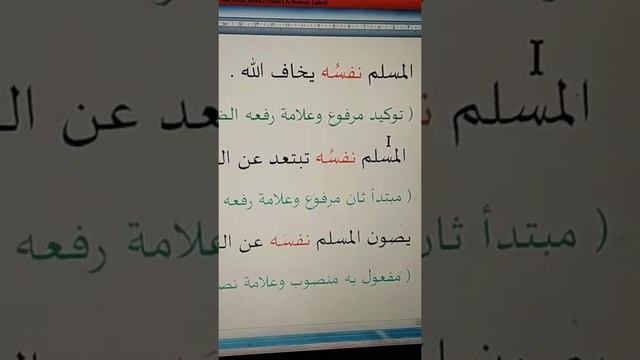 المسلم نفسُه يخاف الله .
( توكيد مرفوع وعلامة رفعه
المسلم نفسُه تبتعد عن
( مبتدأ ثان مرفوع وعلامة رفعه
يصون المسلم نفسَه عن
( مفعول به منصوب وعلامة